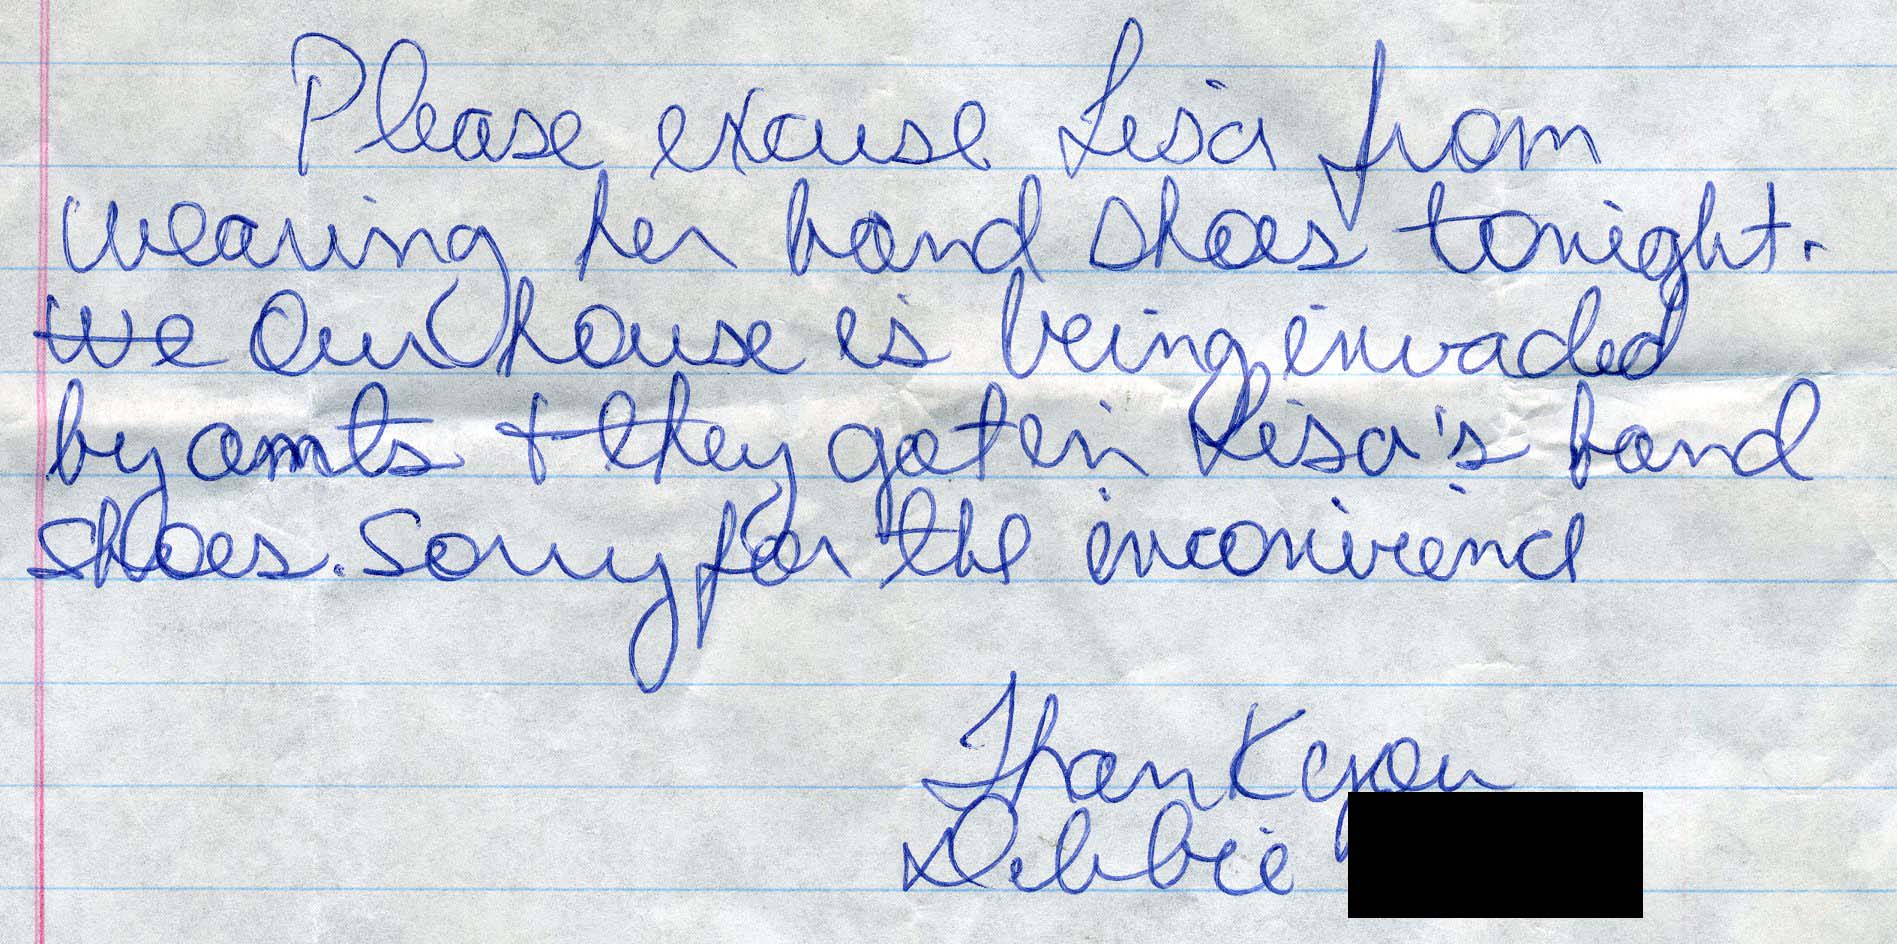 Please excuse Lisa from
wearing her band shoes tonight.
We Our house is being invaded
by ants + they got in Lisa's band
shoes. Sorry for the inconvirence
Thank you
Debbie